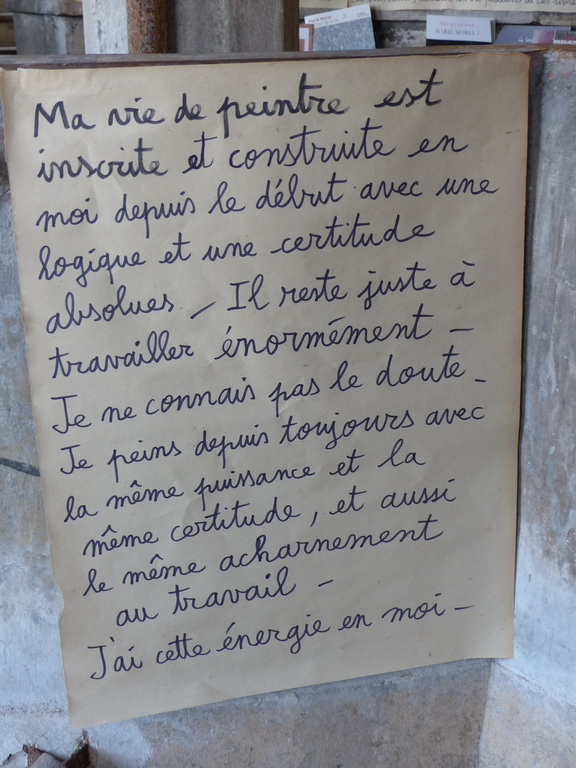 MARIE MOREL
Ma vie de peintre est
inscrite et construite en
moi depuis le début avec une
logique et une certitude
absolues – Il reste juste à
travailler énormément –
Je ne connais pas le doute –
Je peins depuis toujours avec
la même puissance et la
même certitude, et aussi
le même acharnement
au travail –
J'ai cette énergie en moi –